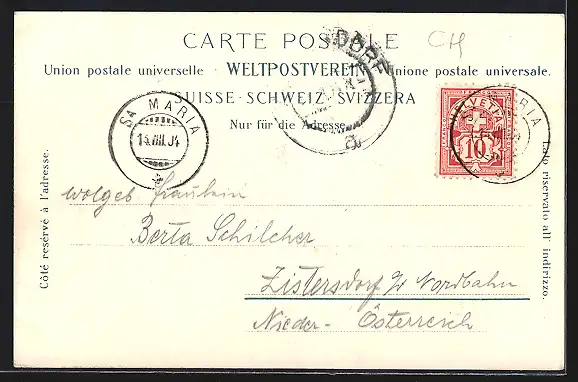 CARTE POSTALE
CH
Union postale universelle WELTPOSTVEREIN Unione postale universale.
SUISSE · SCHWEIZ · SVIZZERA
Nur für die Adresse.
Côté réservé à l'adresse.
Lato riservato all' indirizzo.
DORF
Sa MARIA
HELVETIA
10
MARIA
wolgeb Fräulein
Berta Schilcher
Zistersdorf a/ Nordbahn
Nieder- Österreich